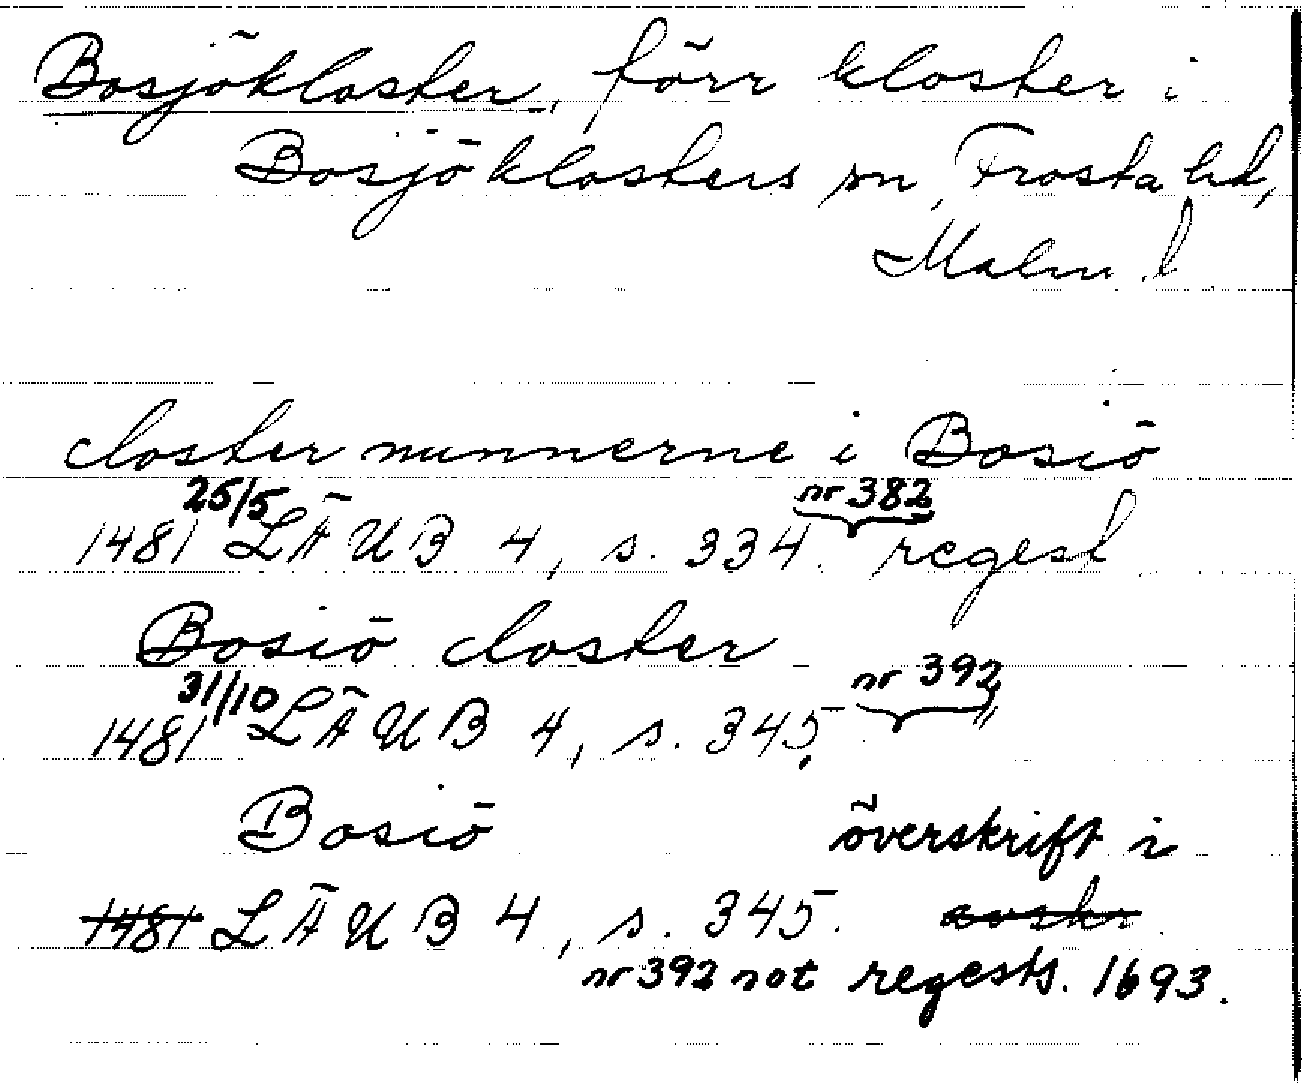 Bosjökloster, förr kloster i
Bosjöklosters sn, Frosta hd,
Malm. l
closter nunnerne i Bosiö
25/5 nr 382
1481 LÄUB 4, s. 334. regest
Bosiö closter
31/10 nr 392
1481 LÄUB 4, s. 345.
Bosiö överskrift i
1481 LÄUB 4, s. 345. avskr.
nr 392 not regests. 1693.